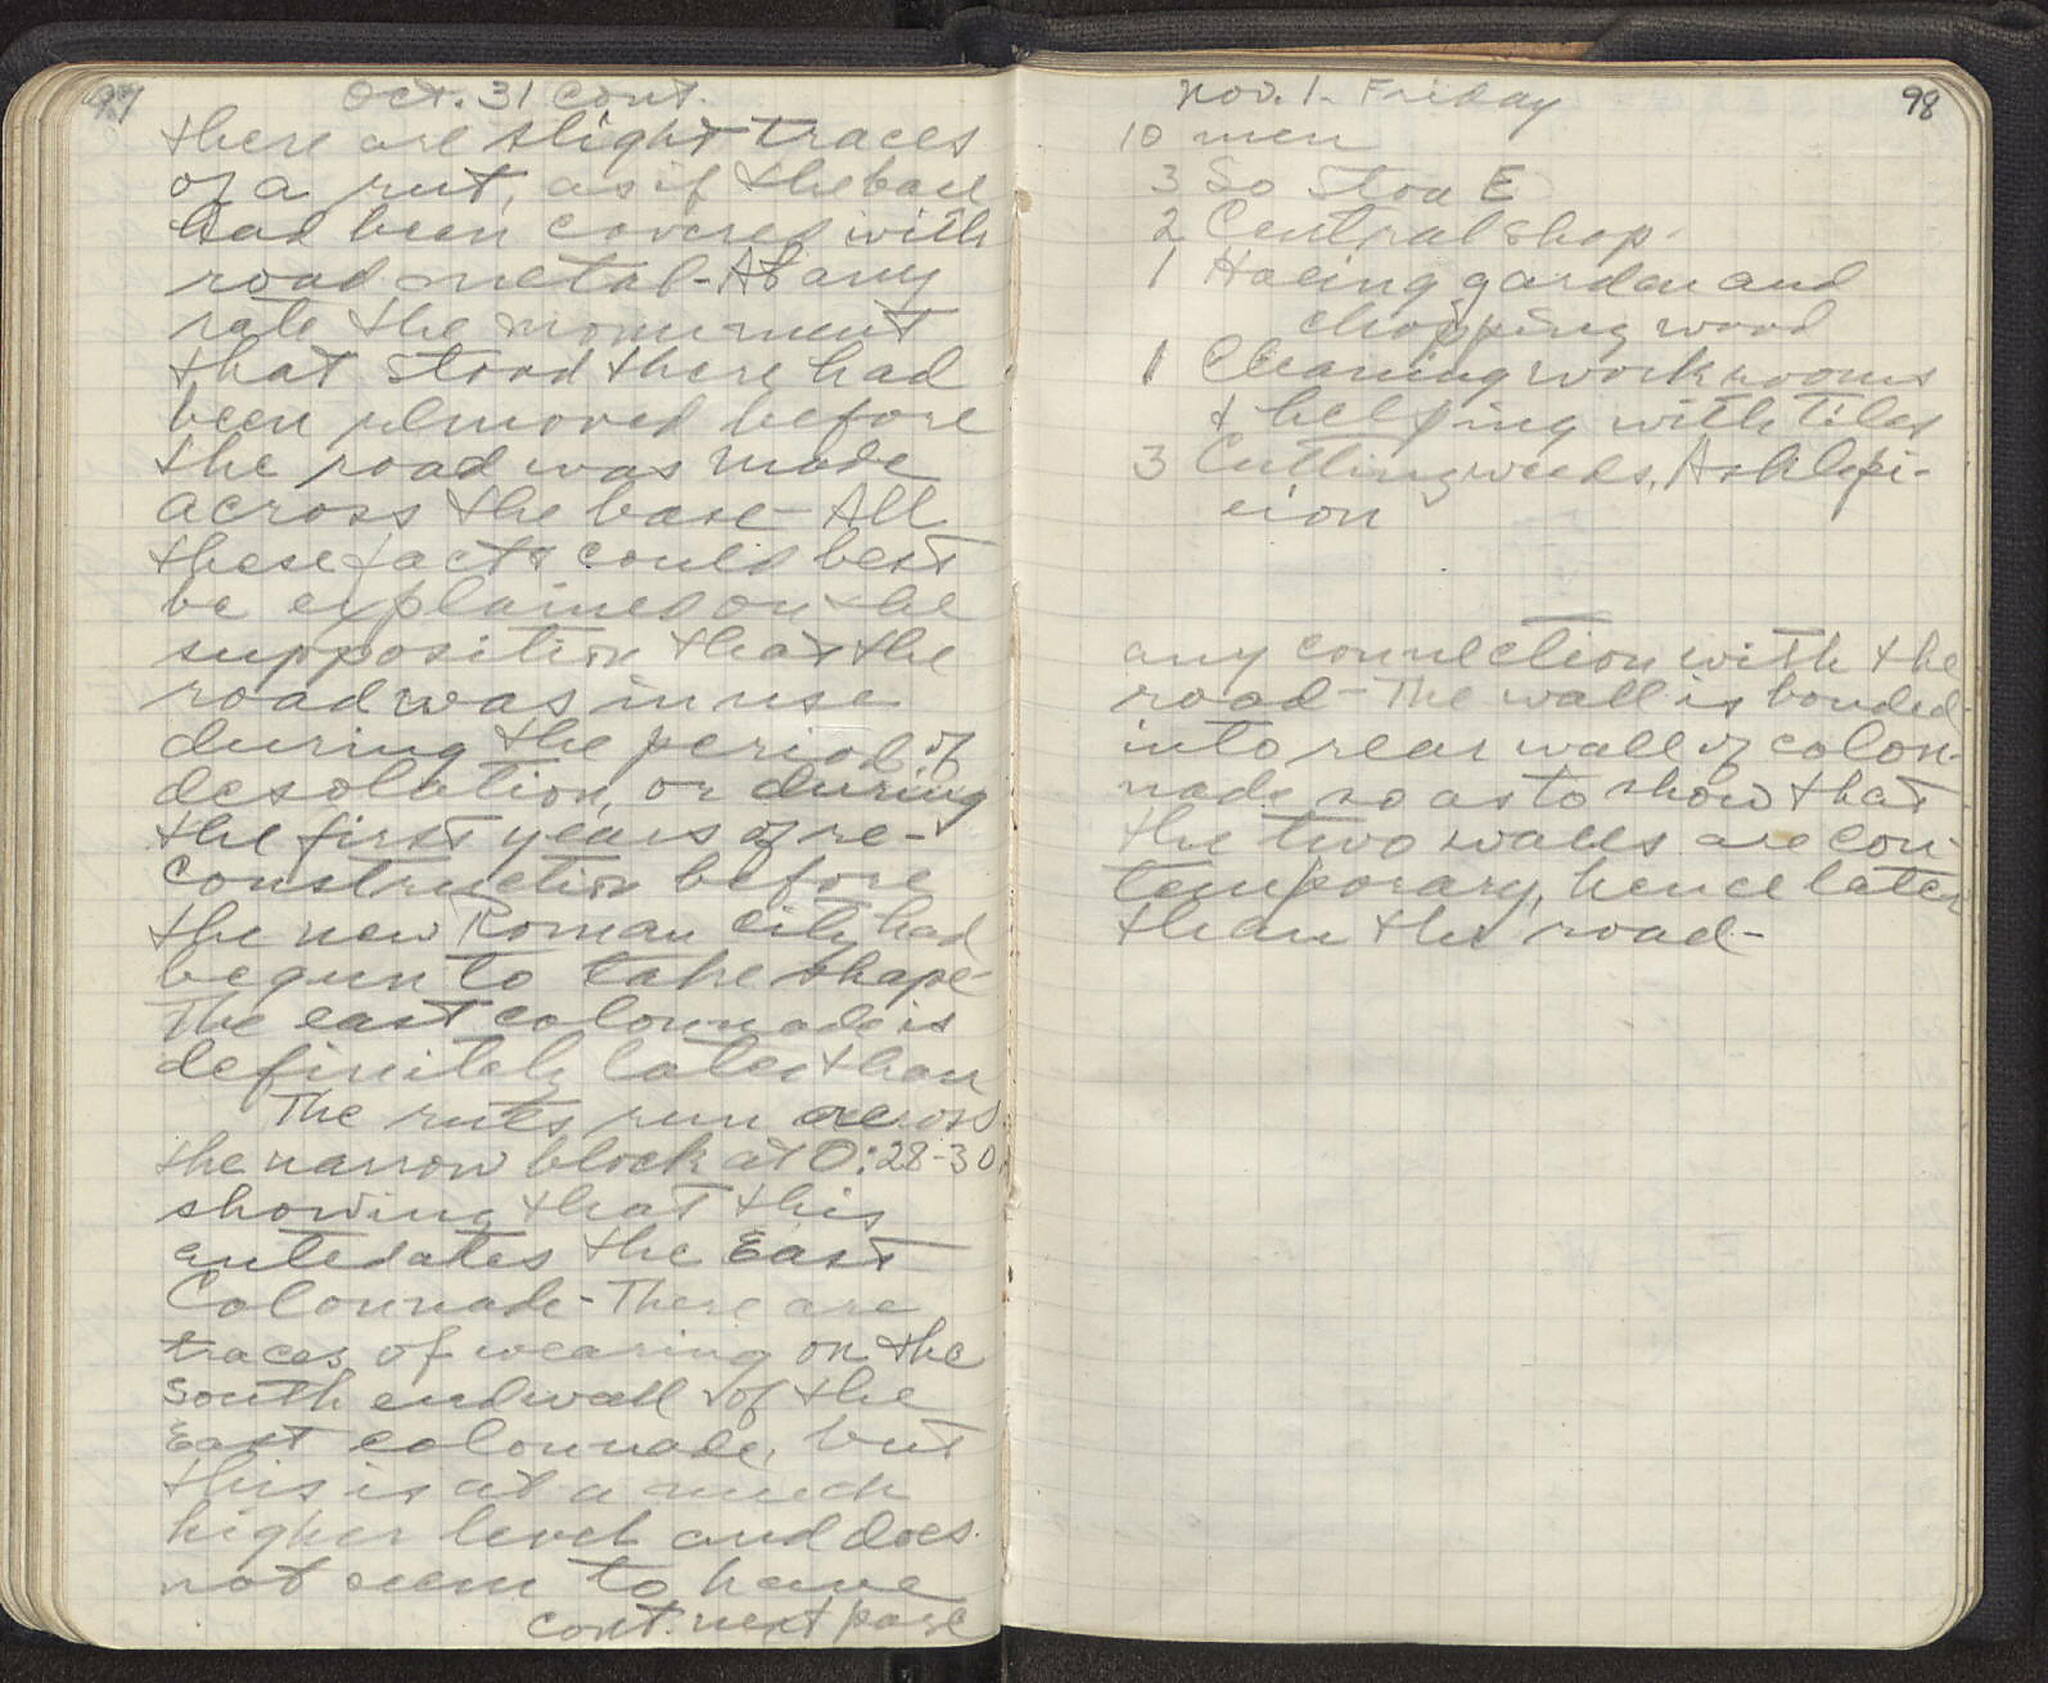 97
Oct. 31 cont.
there are slight traces
of a rut, as if the base
had been covered with
road metal - At any
rate the monument
that stood there had
been removed before
the road was made
across the base - All
these facts could best
be explained on the
supposition that the
road was in use
during the period of
desolation, or during
the first years of re-
construction before
the new Roman city had
begun to take shape -
The east colonnade is
definitely later than
The ruts run across
the narrow block at O:28-30,
showing that this
antedates the East
Colonnade - There are
traces of wearing on the
south end wall of the
East colonnade, but
this is at a much
higher level and does
not seem to have
cont. next page
Nov. 1 - Friday
98
10 men
3 So Stoa E
2 Central Shop.
1 Hoeing garden and
chopping wood
1 Cleaning work rooms
& helping with tiles
3 Cutting weeds, Asklepi-
eion
any connection with the
road - The wall is bonded
into rear wall of colon-
nade so as to show that
the two walls are con-
temporary, hence later
than the road -